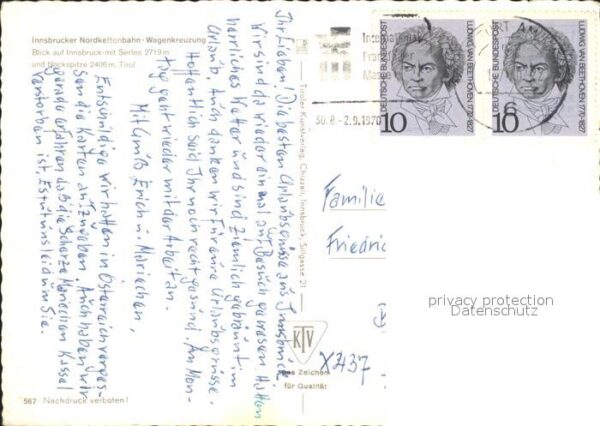 Innsbrucker Nordkettenbahn · Wagenkreuzung
Blick auf Innsbruck mit Serles 2719 m
und Rockspitze 2406 m, Tirol
Ihr Lieben! Die besten Urlaubsgrüsse aus Innsbruck
Wir sind da wieder einmal auf Besuch gewesen. Hatten
herrliches Wetter und sind ziemlich gebräunt im
Urlaub. Auch danken wir für eure Urlaubsgrüsse.
Hoffentlich seid Ihr noch recht gesund. Am Mon-
tag geht wieder mit der Arbeit an.
Mit Gruß Erich u. Mariechen,
Entschuldige wir hatten in Österreich verges-
sen die Karten aufzugeben. Auch haben wir
gerade erfahren daß die
verstorben ist, Es tut uns leid um Sie.
567 Nachdruck verboten!
Tiroler Kunstverlag, Chizzali, Innsbruck, Sillgasse 21
KTV
das Zeichen
für Qualität
Inter
Fran
Mes
30.8.-2.9.1970
DEUTSCHE BUNDESPOST
LUDWIG VAN BEETHOVEN 1770-1827
10
DEUTSCHE BUNDESPOST
LUDWIG VAN BEETHOVEN 1770-1827
10
Familie
Friedric
X2437
privacy protection
Datenschutz